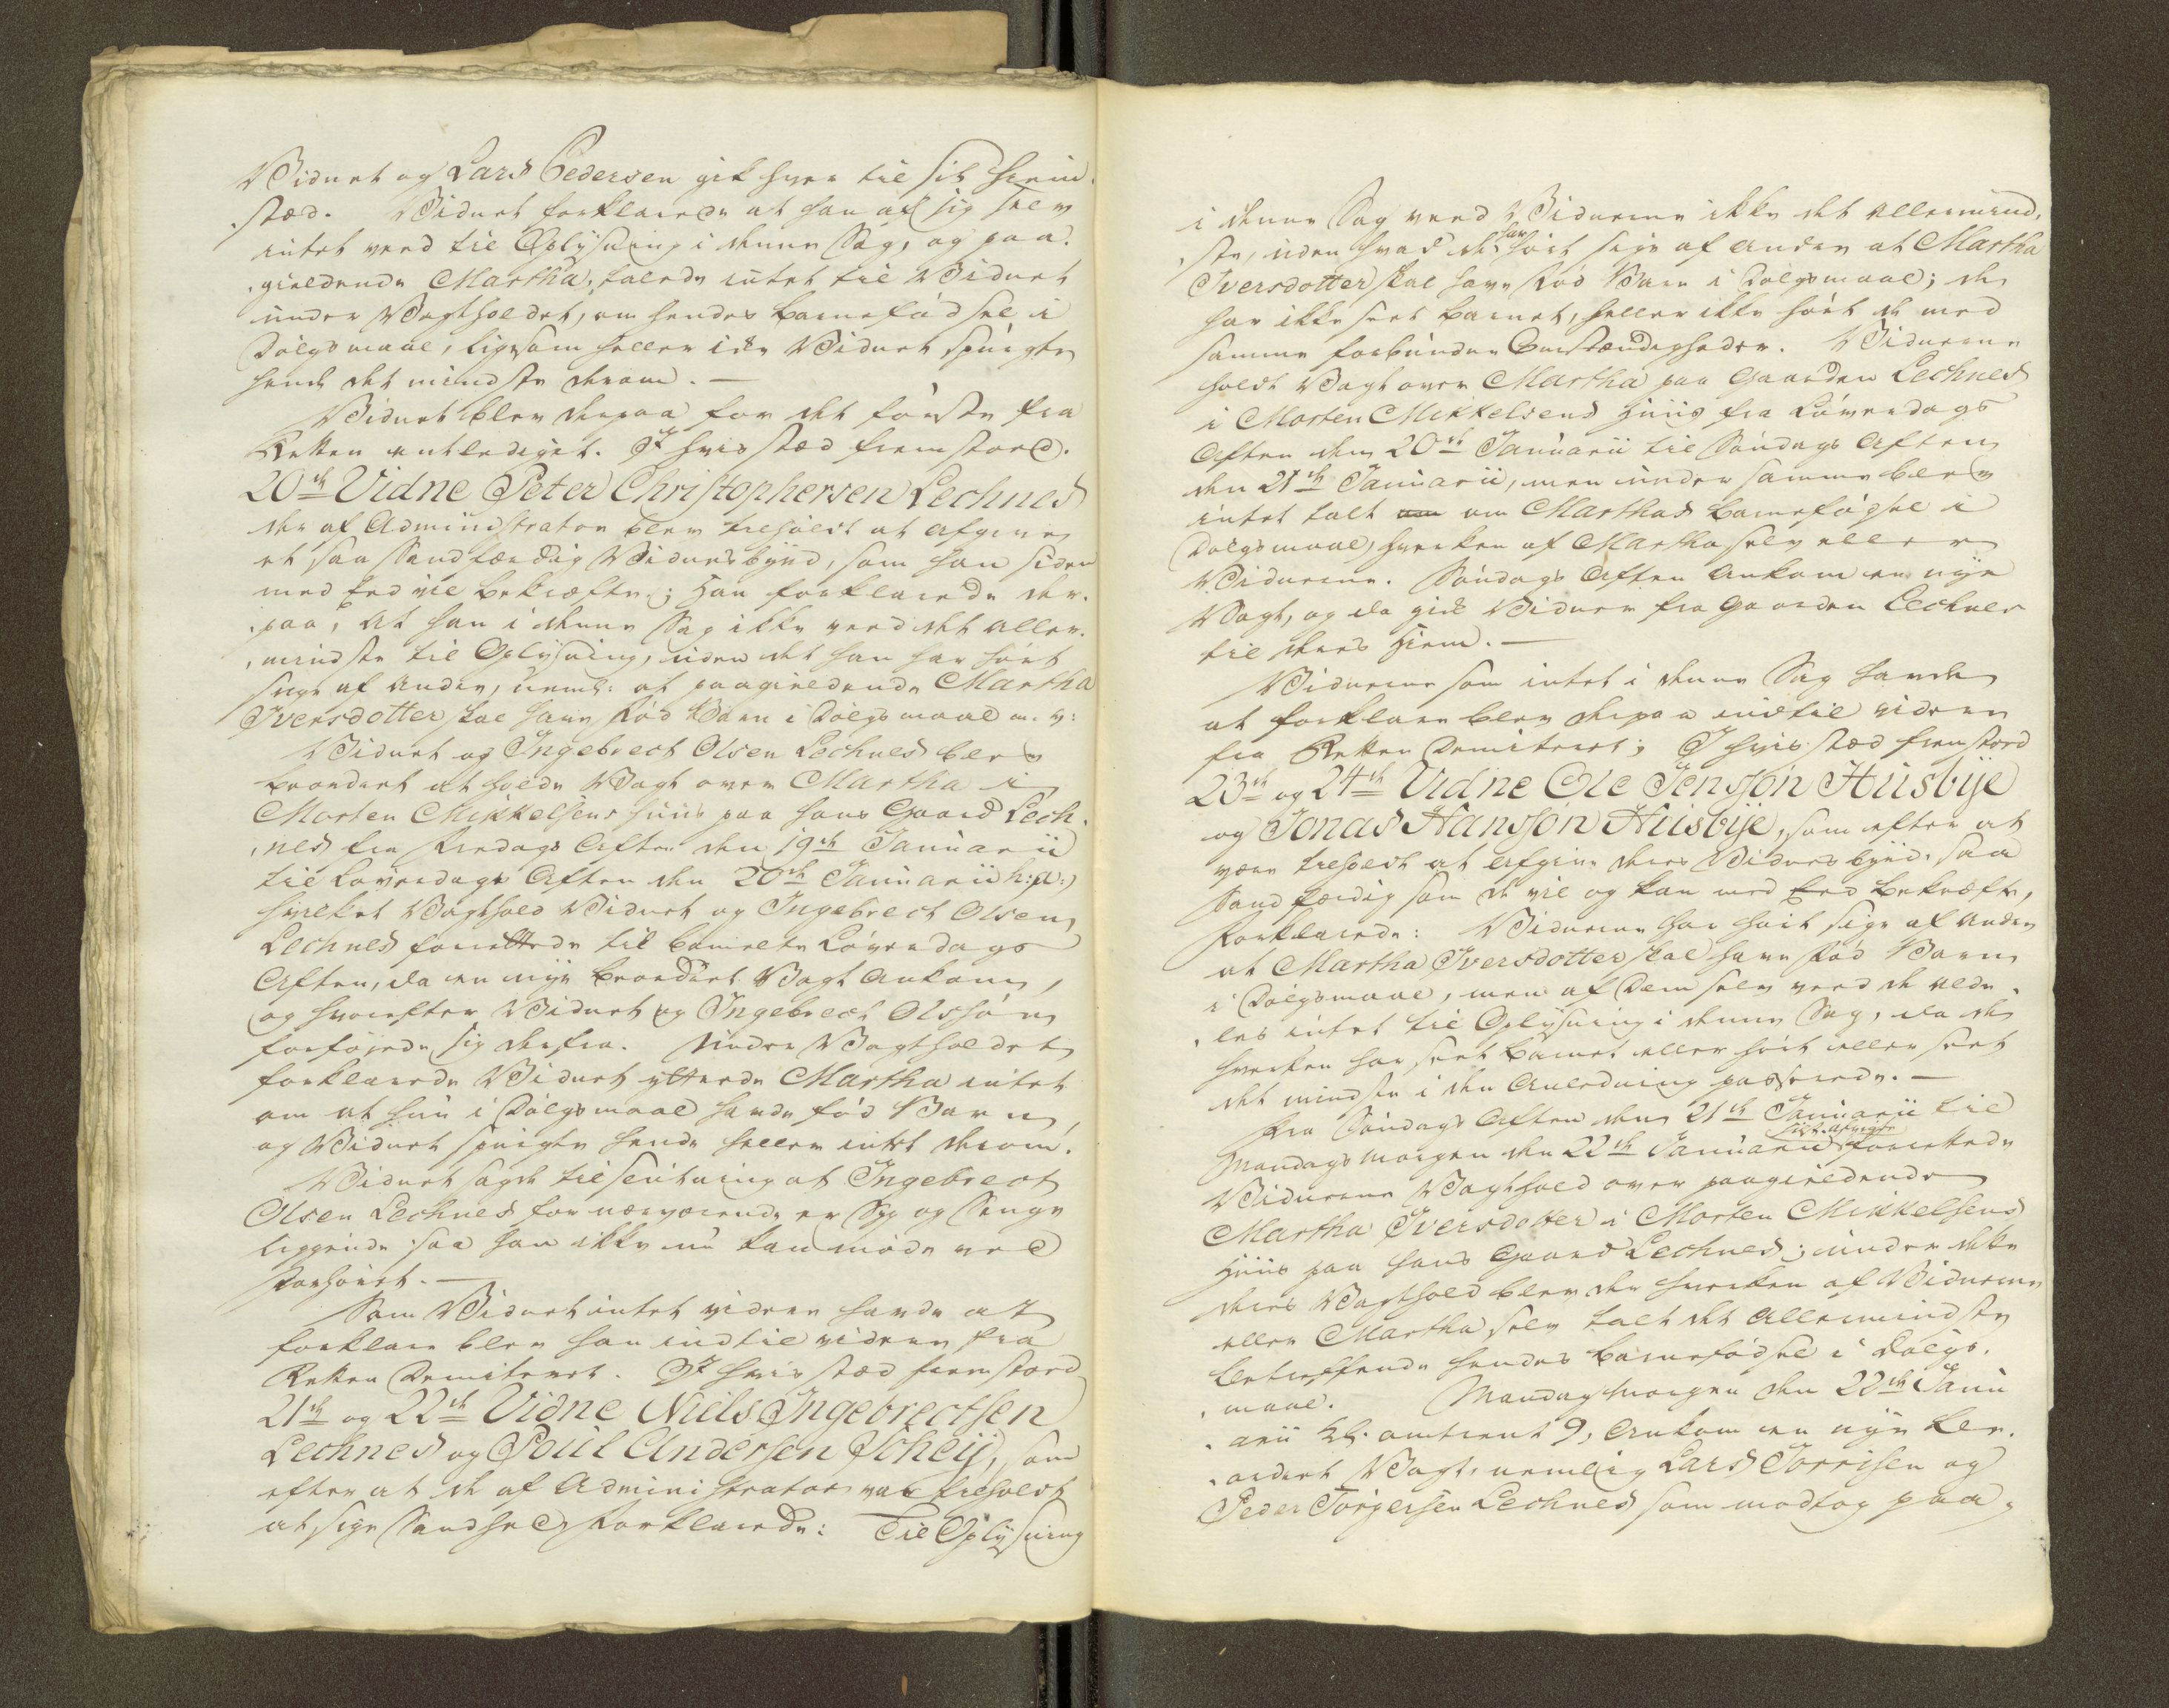 Vidnet og Lars Pedersen gik hver til sit hiem-
stæd. Vidnet forklarede at han af sig selv
intet veed til Oplysning i denne Sag, og paa-
gieldende Martha, talede intet til Vidnet
under Vagtholdet, om hendes barnefødsel i
Dølgsmaal, ligesom heller ikke Vidnet spurgte
hende det mindste derom. —
Vidnet blev derpaa for det første fra
Retten entlediget. I hvis stæd fremstoed.
20de Vidne Peter Christophersen Lechnes
der af Administrator blev tilholdt at afgive
et saa Sandfærdig Vidnesbyrd, som han siden
med Eed vil bekræfte; Han forklarede der-
paa, At han i denne Sag ikke veed det aller-
mindste til Oplysning, uden det han har hørt
sige af andre, neml: at paagieldende Martha
Iversdotter skal have fød Barn i Dølgsmaal m. v:
Vidnet og Ingebrect Olsen Lechnes blev
beordret at holde Vagt over Martha i
Morten Mikkelsens huus paa hans Gaard Lech-
nes fra Fredags Aften den 19de Januarii
til Løverdags Aften den 20de Januarii h: a:,
hvilket Vagthold Vidnet og Ingebrect Olsen
Lechnes forrettede til bemelte Løverdags
Aften, da en nye beordret Vagt ankom,
og hvorefter Vidnet og Ingebrect Olsøn
forføjede sig derfra. Under Vagtholdet
forklarede Vidnet ytterde Martha intet
om at hun i Dølgsmaal havde fød Barn,
og Vidnet spurgte hende heller intet derom.
Vidnet sagde til slutning at Ingebrect
Olsen Lechnes for nærværende er Syg og Senge
liggende saa han ikke nu kan møde ved
Forhøret. —
Som Vidnet intet videre havde at
forklare blev han indtil videre fra
Retten Demiteret. I hvis stæd fremstoed
21de og 22de Vidne Niels Ingebrectsen
Lechnes og Poul Andersen Scheij, som
efter at de af Administrator var tilholdt
at sige Sandhed, Forklarede: Til Oplysning
i denne Sag veed Vidnerne ikke det allermind-
ste, uden hvad de har hørt sige af andre at Martha
Iversdotter skal have fød Barn i Dølgsmaal; de
har ikke seet barnet, heller ikke hørt de med
samme forbundne Omstændigheder. Vidnerne
holdt Vagt over Martha paa Gaarden Lechnes
i Morten Mikkelsens Huus fra Løverdags
Aften den 20de Januarii til Søndags Aften
den 21de Januarii, men under samme blev
intet talt om Marthas barnefødsel i
Dølgsmaal, hverken af Martha selv eller
Vidnerne. Søndags Aften ankom en nye
Vagt, og da gik Vidner fra Gaarden Lechnes
til deres Hiem. —
Vidnerne som intet i denne Sag havde
at forklare blev derpaa indtil videre
fra Retten Demiteret; I hvis stæd fremstoed
23de og 24de Vidne Ole Jensøn Husbye
og Jonas Hansøn Husbye, som efter at
være tilholdt at afgive deres Vidnesbyrd saa
Sandfærdig som de vil og kan med Eed bekræfte,
Forklarede: Vidnerne har hørt sige af andre
at Martha Iversdotter skal have fød Barn
i Dølgsmaal, men af Dem selv veed de alde-
les intet til Oplysning i denne Sag, da de
hverken har seet barnet eller hørt eller seet
det mindste i den Anledning passerede. —
Fra Søndags Aften den 21de Januarii til
Mandags Morgen den 22de Januarii sidst afvigte forrettede
Vidnerne Vagthold over paagieldende
Martha Iversdotter i Morten Mikkelsens
Huus paa hans Gaard Lechnes; under dette
deres Vagthold blev der hverken af Vidnerne
eller Martha selv talt det allermindste
betreffende hendes barnefødsel i Dølgs-
maal. Mandag Morgen den 22de Janu-
arii Kl. omtrent 9, ankom en nye be-
ordret Vagt, nemlig Lars Torrisen og
Peder Torgersen Lechnes som modtog paa-